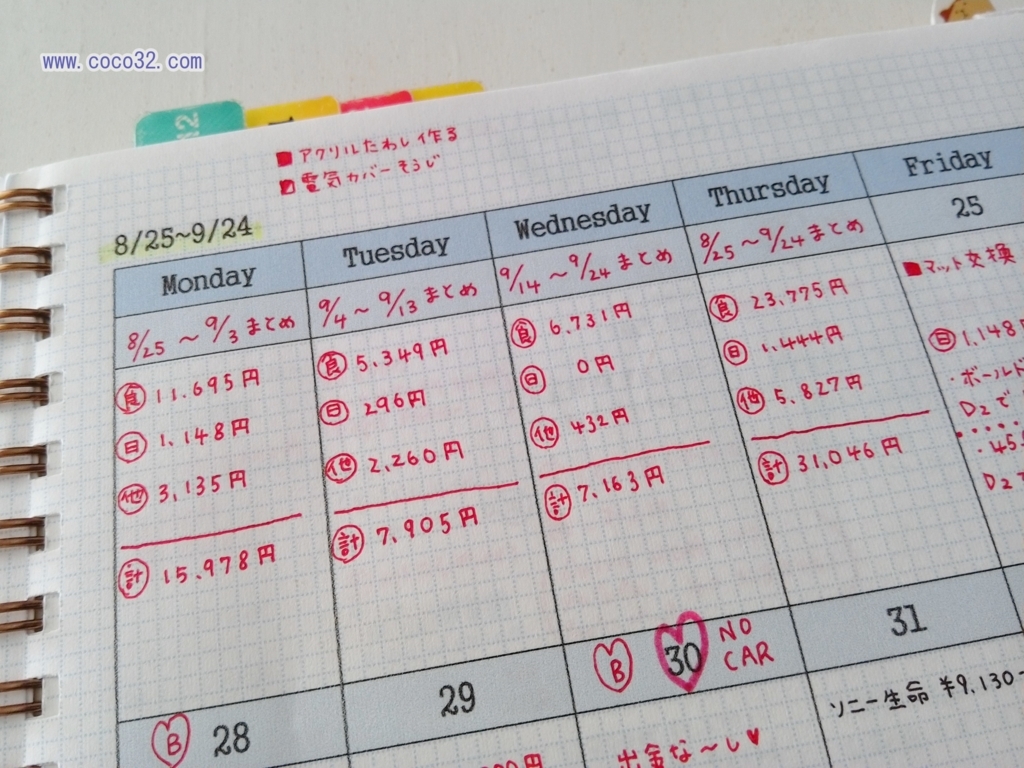 www.coco32.com
12
■アクリルたわし作る
電気カバーそうじ
8/25~9/24
Monday
Tuesday
Wednesday
Thursday
Friday
25
8/25 ~ 9/3 まとめ
食 11.695円
日 1.148円
他 3,135円
計 15.978円
9/4 ~ 9/13 まとめ
食 5.349円
日 296円
他 2,260円
計 7,905円
9/14 ~ 9/24 まとめ
食 6.731円
日 0円
他 432円
計 7.163円
8/25 ~ 9/24 まとめ
食 23.775円
日 1.444円
他 5,827円
計 31,046円
■マット交換
日 1.148
・ボールド
D2で
・45.
D2
B 28
29
B 30 NO CAR
31
円
出金な~し♥
ソニー生命 ¥9.130-